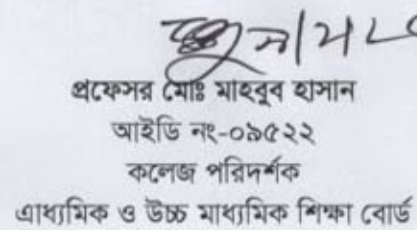 প্রফেসর মোঃ মাহবুব হাসান
আইডি নং-০৯৫২২
কলেজ পরিদর্শক
মাধ্যমিক ও উচ্চ মাধ্যমিক শিক্ষা বোর্ড